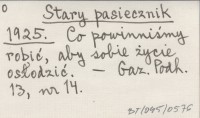 o
Stary pasiecznik
1925. Co powinniśmy
robić, aby sobie życie
osłodzić. — Gaz. Podh.
13, nr 14.
BT/045/0576